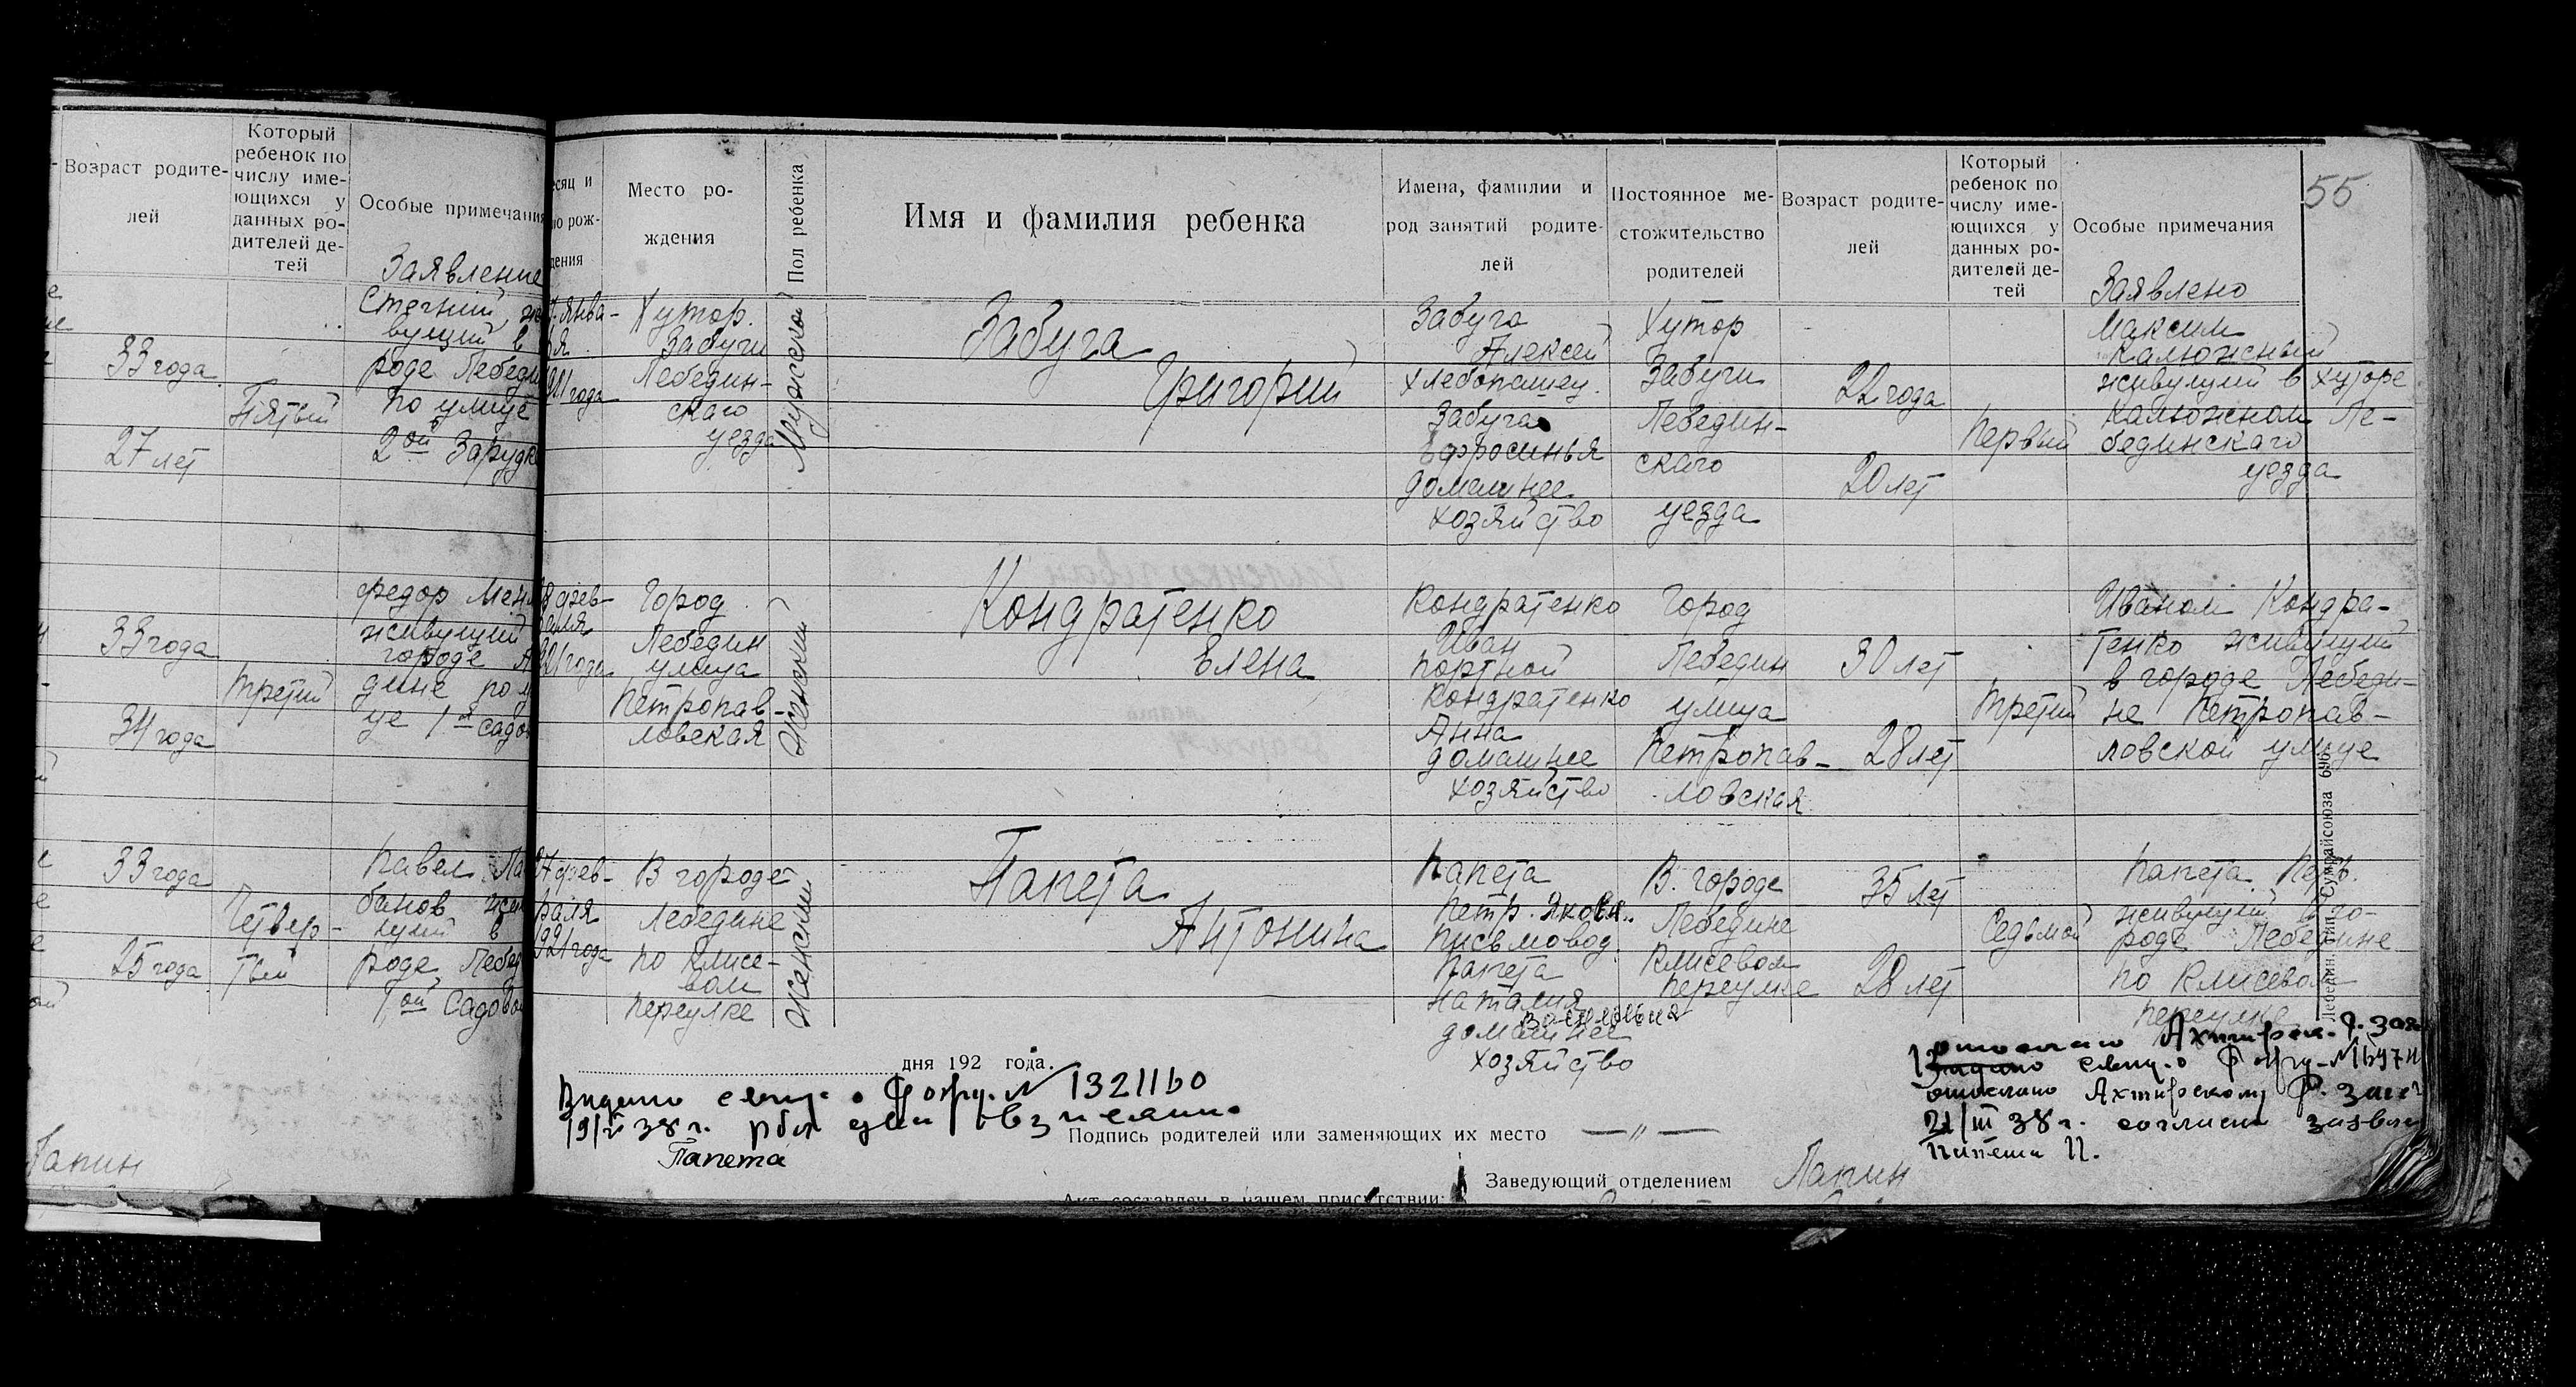 Возраст родите-
лей
Который
ребенок по
числу име-
ющихся у
данных ро-
дителей де-
тей
Особые примечания
Заявление
33 года
27 лет
Пятый
роде Лебеди
по улице
2ой Зарудн
33 года
34 года
третий
федор Мен
живущий
городе
дине по
це 1я садов
33 года
25 года
Четвер-
тый
Павел
банов
роде Лебед
1ой Садовой
Лапин
есяц и
ло рож-
дения
Место ро-
ждения
Пол ребенка
Имя и фамилия ребенка
Имена, фамилии и
род занятий родите-
лей
Постоянное ме-
стожительство
родителей
Возраст родите-
лей
Который
ребенок по
числу име-
ющихся у
данных ро-
дителей де-
тей
Особые примечания
55
Янва-
ря
921 года
Хутор
Забуги
Лебедин-
скаго
уезда
Мужской
Забуга
Григорий
Забуга
Алексей
хлебопашец
Забуга
Ефросинья
домашнее
хозяйство
Хутор
Забуги
Лебедин-
скаго
уезда
22 года
20 лет
Первый
Заявлено
Максим
Калюжный
живущий в хуторе
Калюжном Ле-
бединскаго
уезда
8 фев-
раля
921 года
Город
Лебедин
улица
Петропав-
ловская
Женский
Кондратенко
Елена
Кондратенко
Иван
портной
Кондратенко
Анна
домашнее
хозяйство
Город
Лебедин
улица
Петропав-
ловская
30 лет
28 лет
Третий
Иваном Кондра-
тенко живущий
в городе Лебеди-
не Петропав-
ловской улице
7 фев-
раля
1921 года
В городе
Лебедине
по Клисе-
вом
переулке
Женский
Папета
Антонина
Папета
Петр. Яковл.
письмовод.
Папета
Наталия
Васильевна
домашнее
хозяйство
В. городе
Лебедине
Клисевом
переулке
35 лет
28 лет
Седьмой
Папета
живущий в го-
роде Лебедине
по Клисевом
переулке
Лебедин. тип. Сумрайсоюза 696
дня 192 года.
Видано свид. о № 1321160
38 г.
Папета
Подпись родителей или заменяющих их место —„—
Заведующий отделением Лапин
Акт составлен в нашем присутствии:
отослано Ахтирск.
свид. о
отослано Ахтирскому
21/III 38 г. согласно
Папета П.